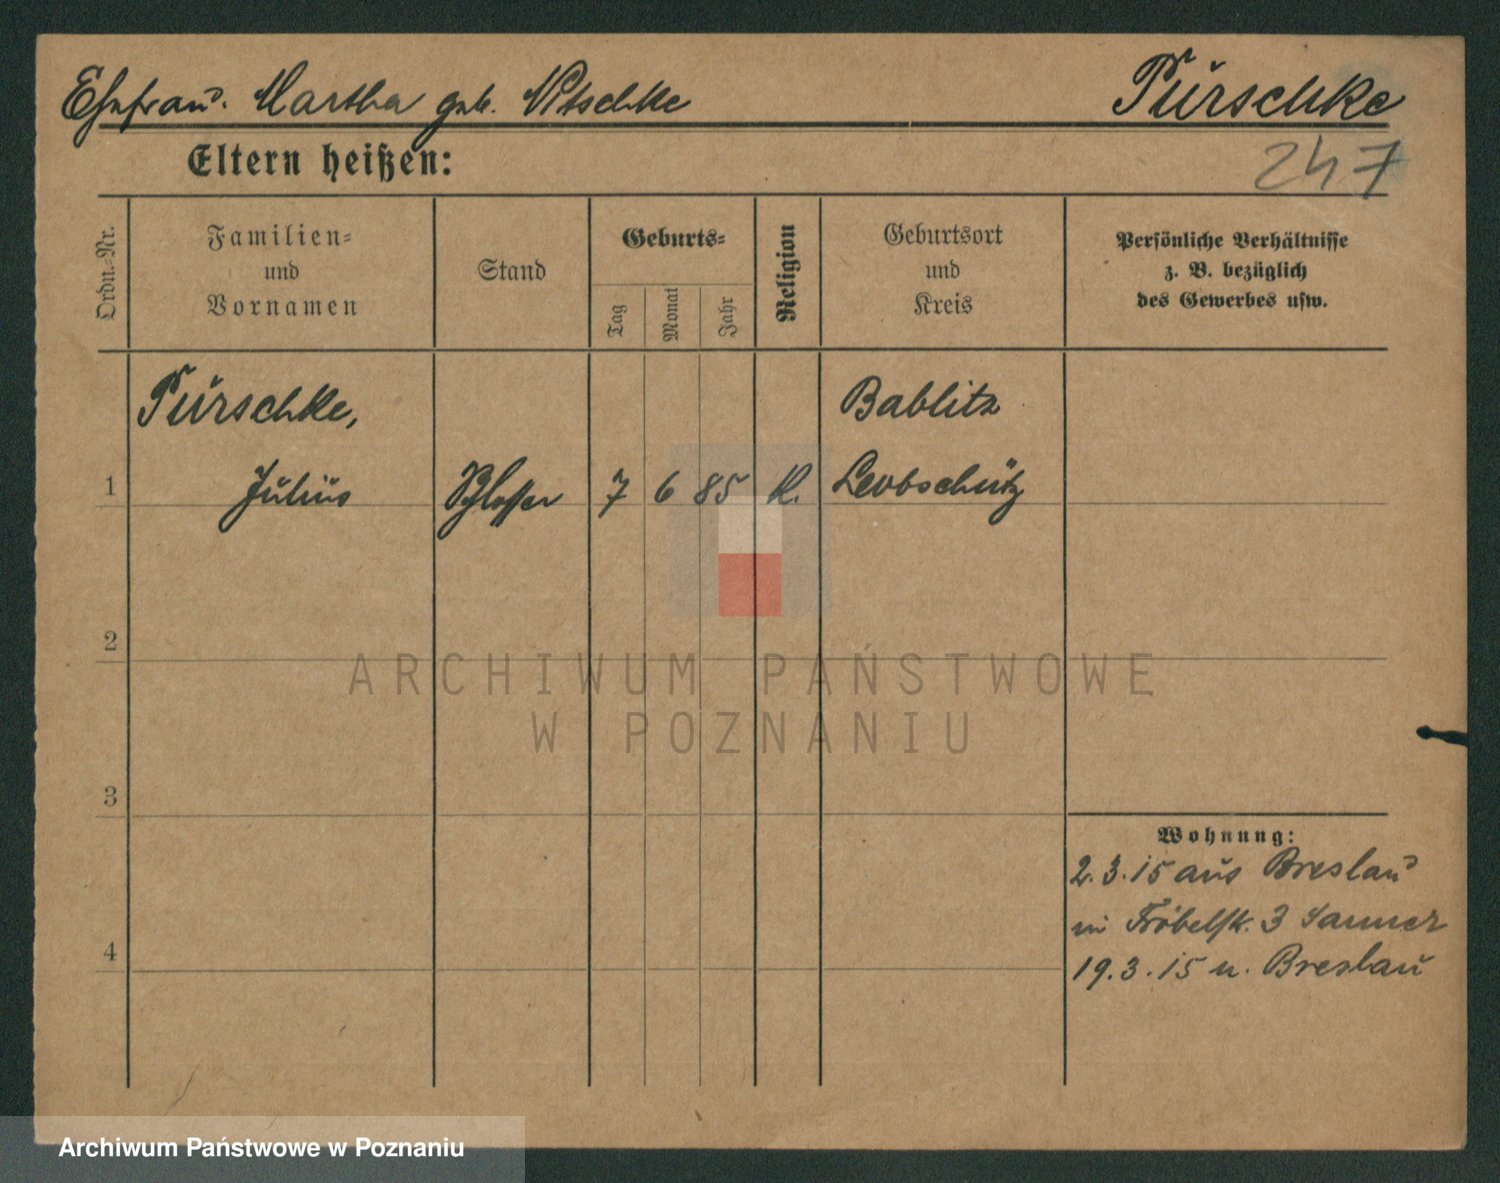 Ehefrau. Martha geb. Nitschke Pürschke
247
Eltern heißen:
Ordn.-Nr.
Familien-
und
Vornamen
Stand
Geburts-
Tag
Monat
Jahr
Religion
Geburtsort
und
Kreis
Persönliche Verhältnisse
z. B. bezüglich
des Gewerbes usw.
Pürschke, Bablitz
1 Julius Schlosser 7 6 85 k. Leobschütz
2
3
4
Wohnung:
2.3.15 aus Breslau
in Fröbelstr. 3
19.3.15 n. Breslau
ARCHIWUM PAŃSTWOWE
W POZNANIU
Archiwum Państwowe w Poznaniu